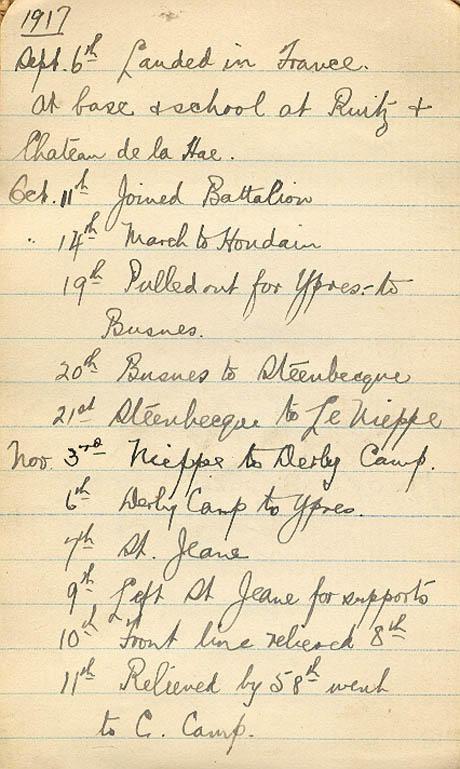 1917
Sept. 6th Landed in France.
At base & school at Ruitz &
Chateau de la Hae.
Oct. 11th Joined Battalion
" 14th March to Houdain
19th Pulled out for Ypres - to
Busnes.
20th Busnes to Steenbecque
21st Steenbecque to Le Nieppe
Nov. 3rd Nieppe to Derby Camp.
6th Derby Camp to Ypres.
7th St. Jeane
9th Left St Jeane for supports
10th Front line relieved 8th
11th Relieved by 58th went
to C. Camp.